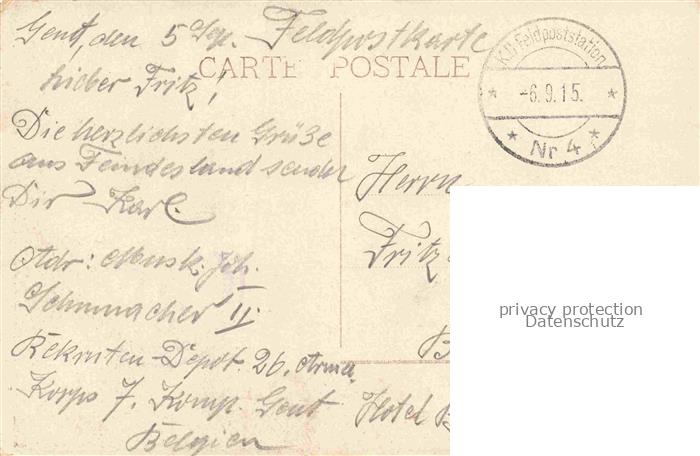 Gent, den 5 Sep. Feldpostkarte
CARTE POSTALE
K.D. Feldpoststation
-6.9.15.
Nr 4
Lieber Fritz!
Die herzlichsten Grüße
aus Feindesland sendet
Dir Karl.
Adr: Musk. Joh.
Schumacher II.
Rekruten-Depot. 26. Armee
Korps 7. Komp Gent
Belgien
Herrn
Fritz
Hotel
privacy protection
Datenschutz